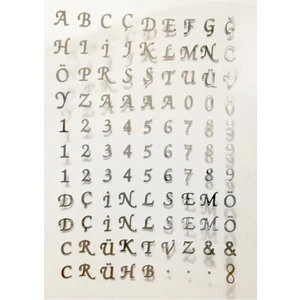 A B C Ç D E F G Ğ
H I İ J K L M N O
Ö P R S Ş T U Ü V
Y Z A A A A 0 0 6
1 2 3 4 5 6 7 8 9
1 2 3 4 5 6 7 8 9
1 2 3 4 5 6 7 8 9
D Ç İ N L S E M Ö
D Ç İ N L S E M Ö
C R Ü K T V Z & &
C R Ü H B . . . 8